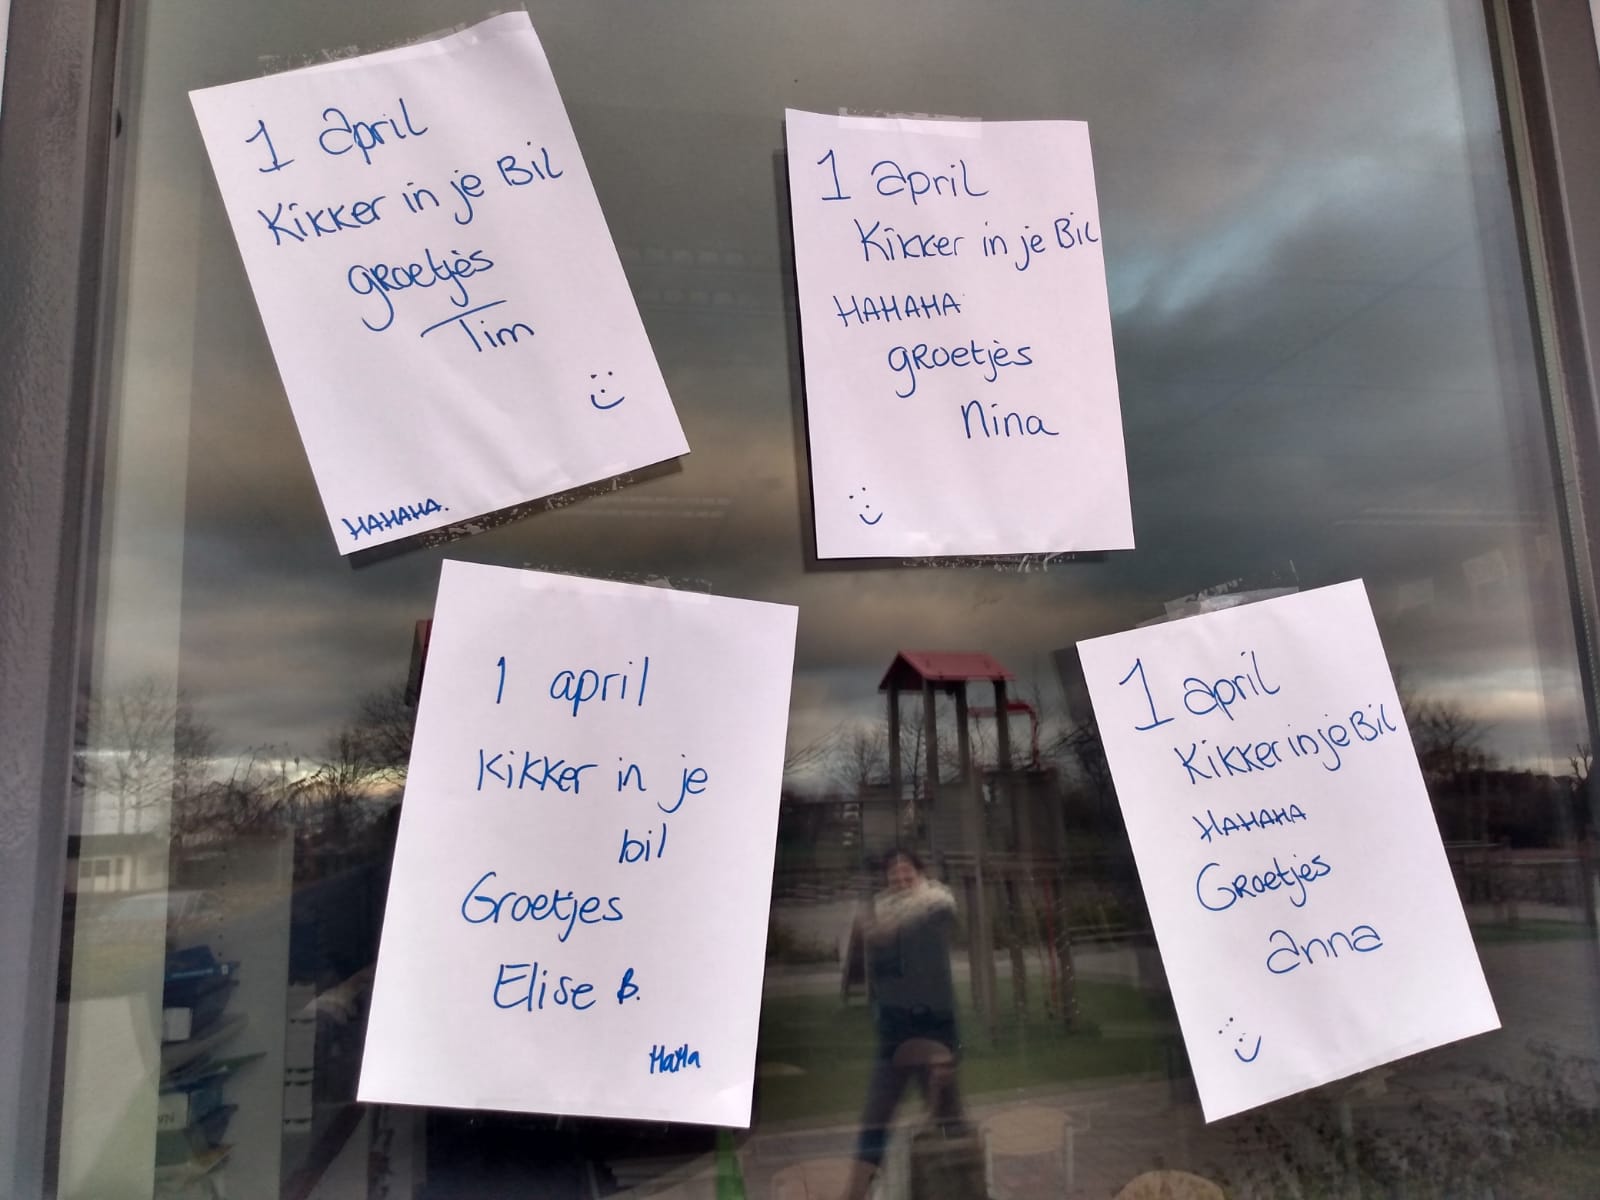 1 april
Kikker in je Bil
groetjes
Tim
HAHAHA.
1 april
Kikker in je Bil
HAHAHA
groetjes
Nina
1 april
Kikker in je
bil
Groetjes
Elise B.
HaHa
1 april
Kikker in je Bil
HAHAHA
Groetjes
anna